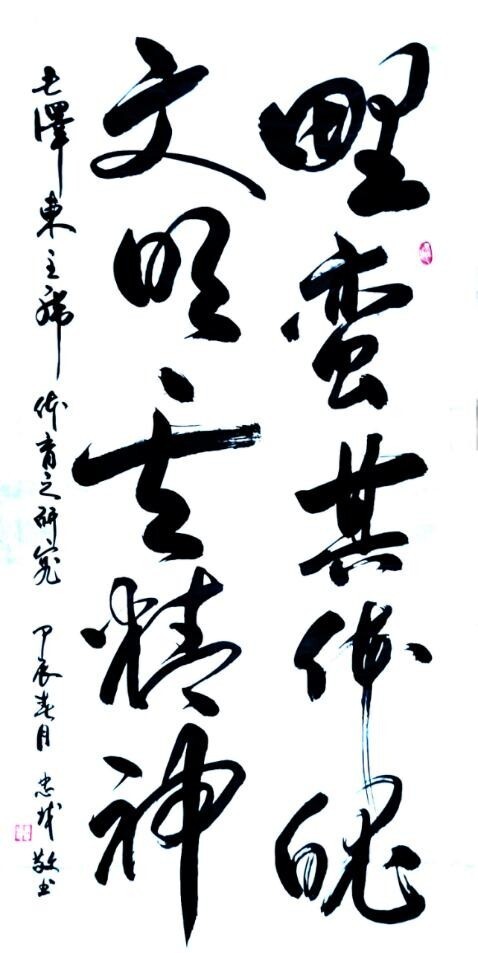 野蛮其体魄
文明其精神
毛澤東主席 体育之研究 甲辰春月 忠成敬书